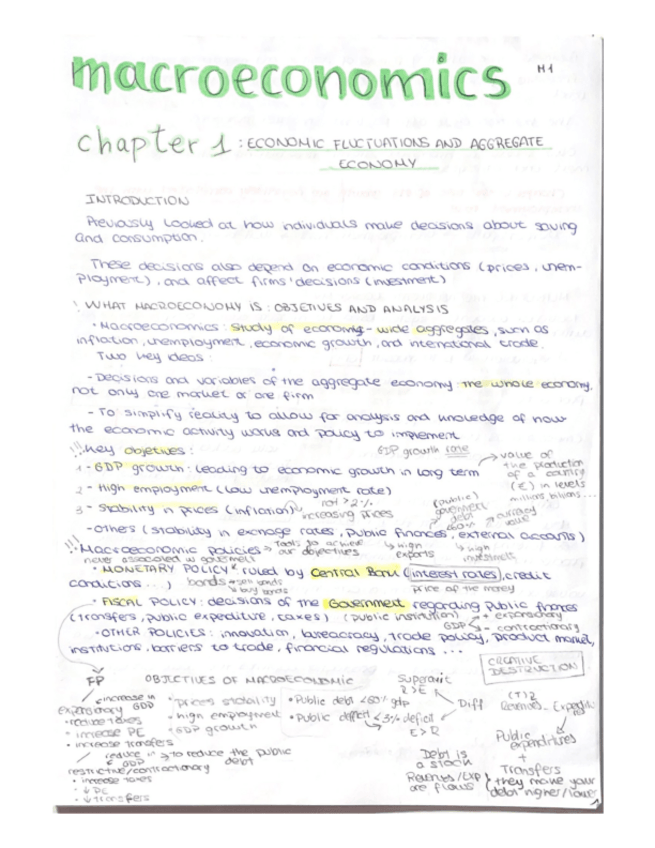 macroeconomics
M1
chapter 1 : ECONOMIC FLUCTUATIONS AND AGGREGATE
ECONOMY
INTRODUCTION
Previously looked at how individuals make decisions about saving
and consumption.
These decisions also depend on economic conditions (prices, unem-
ployment), and affect firms' decisions (investment)
! WHAT MACROECONOMY IS : OBJETIVES AND ANALYSIS
• Macroeconomics : Study of economy - wide aggregates, such as
inflation, unemployment, economic growth, and international trade.
Two key ideas :
- Decisions and variables of the aggregate economy the whole economy,
not only one market or one firm
- To simplify reality to allow for analysis and knowledge of how
the economic activity works and policy to implement
!!! Key objetives :
GDP growth rate
1 - GDP growth : leading to economic growth in long term
→ value of
the production
of a country
(€) in levels
millions, billions...
2 - High employment (low unemployment rate)
3 - Stability in prices (inflation)
not > 2%
increasing prices
(public)
government
debt
currency
value
- Others (stability in exchage rates, public finances, external accounts)
↳ high
exports
↳ high
!!! Macroeconomic policies → Tools to achieve
our objectives
never associated w goverment
• MONETARY POLICY * ruled by Central Bank (interest rates, credit
conditions ...)
bonds → sell bonds
↳ buy bonds
price of the money
• FISCAL POLICY : decisions of the Government regarding public finances
(transfers, public expenditure, taxes) (public institution)
GDP
+ expansionary
- contractionary
• OTHER POLICIES : innovation, bureacracy, trade policy, product market,
institutions, barriers to trade, financial regulations ...
CREATIVE
DESTRUCTION
FP
OBJECTIVES OF MACROECONOMIC
increase in
GDP
expansionary
• reduce taxes
• increase PE
• increase transfers
• prices stability
• high employment
• GDP growth
• Public debt <60% gdp
• Public deficit <3% deficit
Superavit
R > E
E > R
Diff
Revenues - Expenditu
Public
expenditures
+
Transfers
they make your
debt higher/lower
reduce in
GDP
→ to reduce the public
debt
restrictive/contractionary
• increase taxes
• ↓ PE
• ↓ transfers
Debt is
a stock
Revenues/Exp
are flows
1